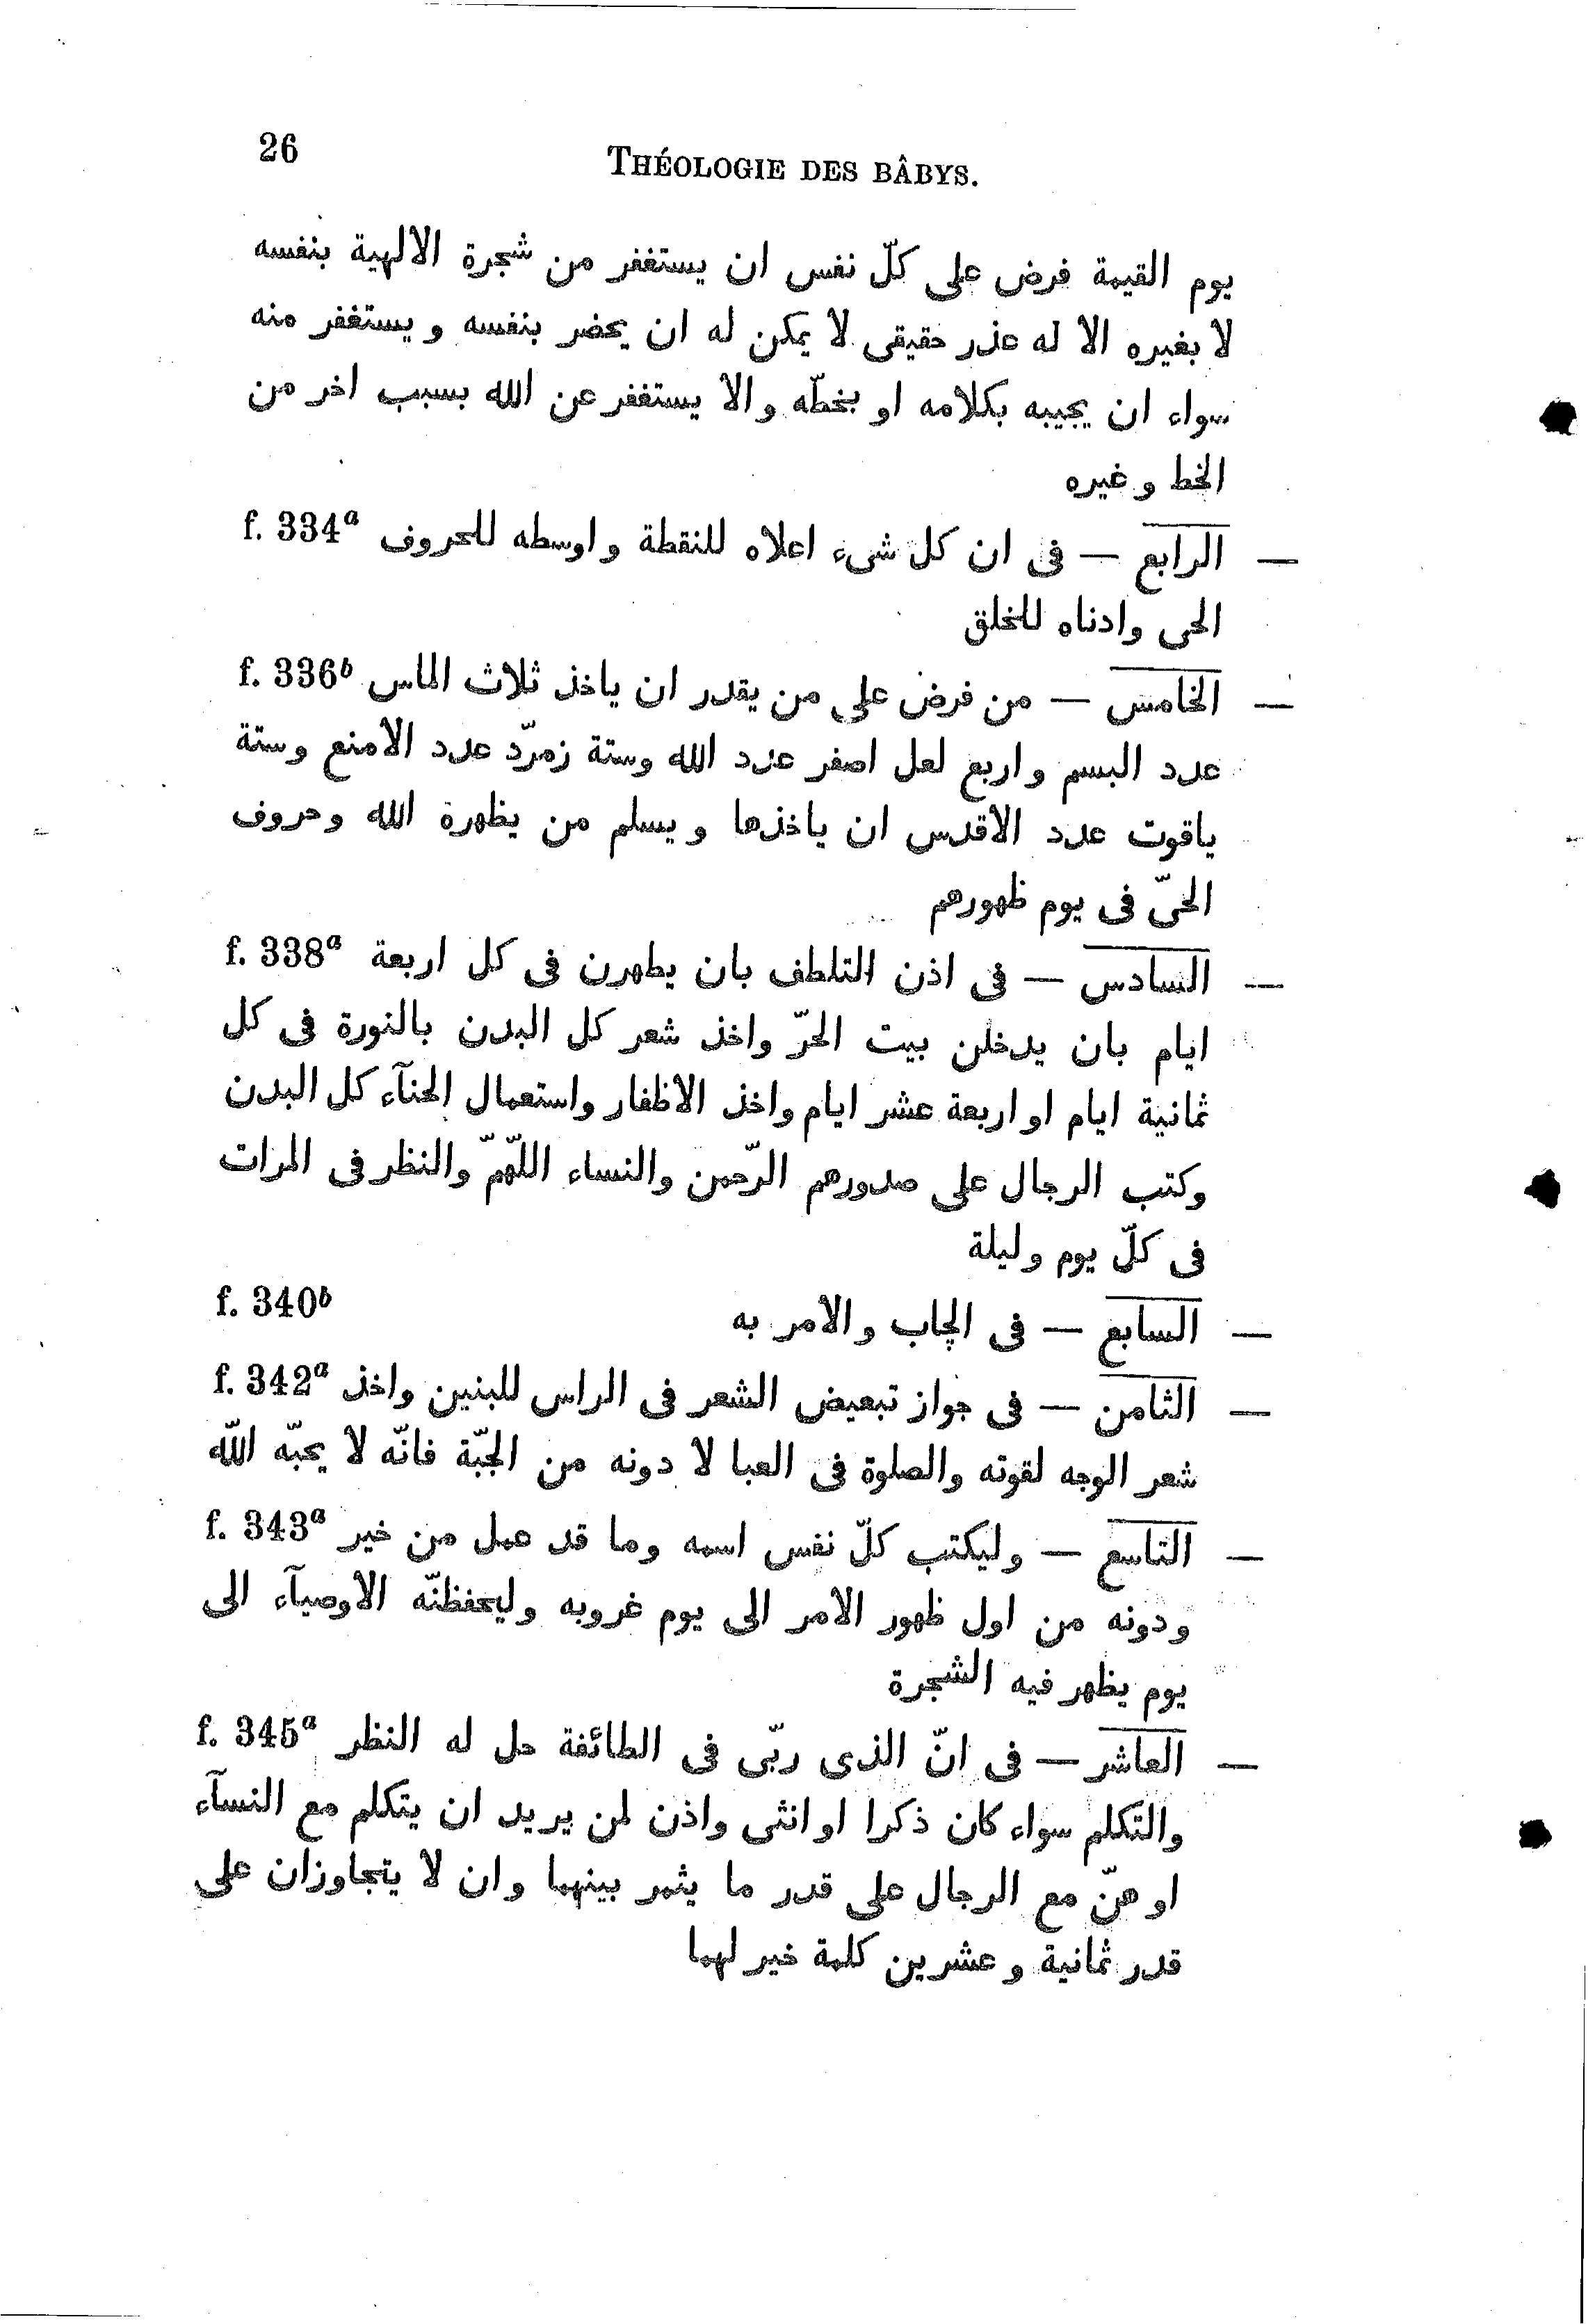 26
THÉOLOGIE DES BÂBYS.
يوم القيمة فرض على كلّ نفس ان يستغفر من شجرة الالهية بنفسه
لا بغيره الا له عذر حقيقى لا يمكن له ان يحضر بنفسه و يستغفر منه
سواء ان يجيبه بكلامه او بخطّه والا يستغفر عن الله بسبب اخر من
الخط و غيره
— الرابع — فى ان كل شىء اعلاه للنقطة و اوسطه للحروف f. 334a
الحى وادناه للخلق
— الخامس — من فرض على من يقدر ان ياخذ ثلاث الماس f. 336b
عدد البسم و اربع لعل اصفر عدد الله وستة زمرّد عدد الامنع وستة
ياقوت عدد الاقدس ان ياخذها و يسلم من يظهرة الله وحروف
الحىّ فى يوم ظهورهم
— السادس — فى اذن التلطف بان يطهرن فى كل اربعة f. 338a
ايام بان يدخلن بيت الحرّ واخذ شعر كل البدن بالنورة فى كل
ثمانية ايام او اربعة عشر ايام واخذ الاظفار واستعمال الحنآء كل البدن
وكتب الرجال على صدورهم الرّحمن والنساء اللّهمّ والنظر فى المرات
فى كلّ يوم وليلة
— السابع — فى الچاب والامر به f. 340b
— الثامن — فى جواز تبعيض الشعر فى الراس للبنين واخذ f. 342a
شعر الوجه لقوته والصلوة فى العبا لا دونه من الجبّة فانّه لا يحبّه اللّه
— التاسع — وليكتب كلّ نفس اسمه وما قد عمل من خير f. 343a
ودونه من اول ظهور الامر الى يوم غروبه وليحفظنّه الاوصيآء الى
يوم يظهر فيه الشجرة
— العاشر — فى انّ الذى ربّى فى الطائفة حل له النظر f. 345a
والتكلم سواء كان ذكرا او انثى واذن لمن يريد ان يتكلم مع النسآء
او هنّ مع الرجال على قدر ما يثمر بينهما وان لا يتجاوزان على
قدر ثمانية و عشرين كلمة خير لهما